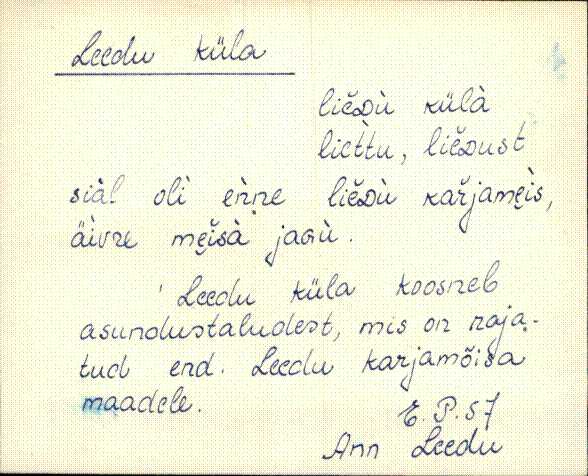 Leedu küla
liĕᴅù külà
liet̀tu, liĕᴅust
siàl olì en̆ne liĕᴅù kařjamęis,
äìvre męĭsà jaɢù.
Leedu küla koosneb
asundustaludest, mis on raja-
tud end. Leedu karjamõisa
maadele.
E.P.57
Ann Leedu